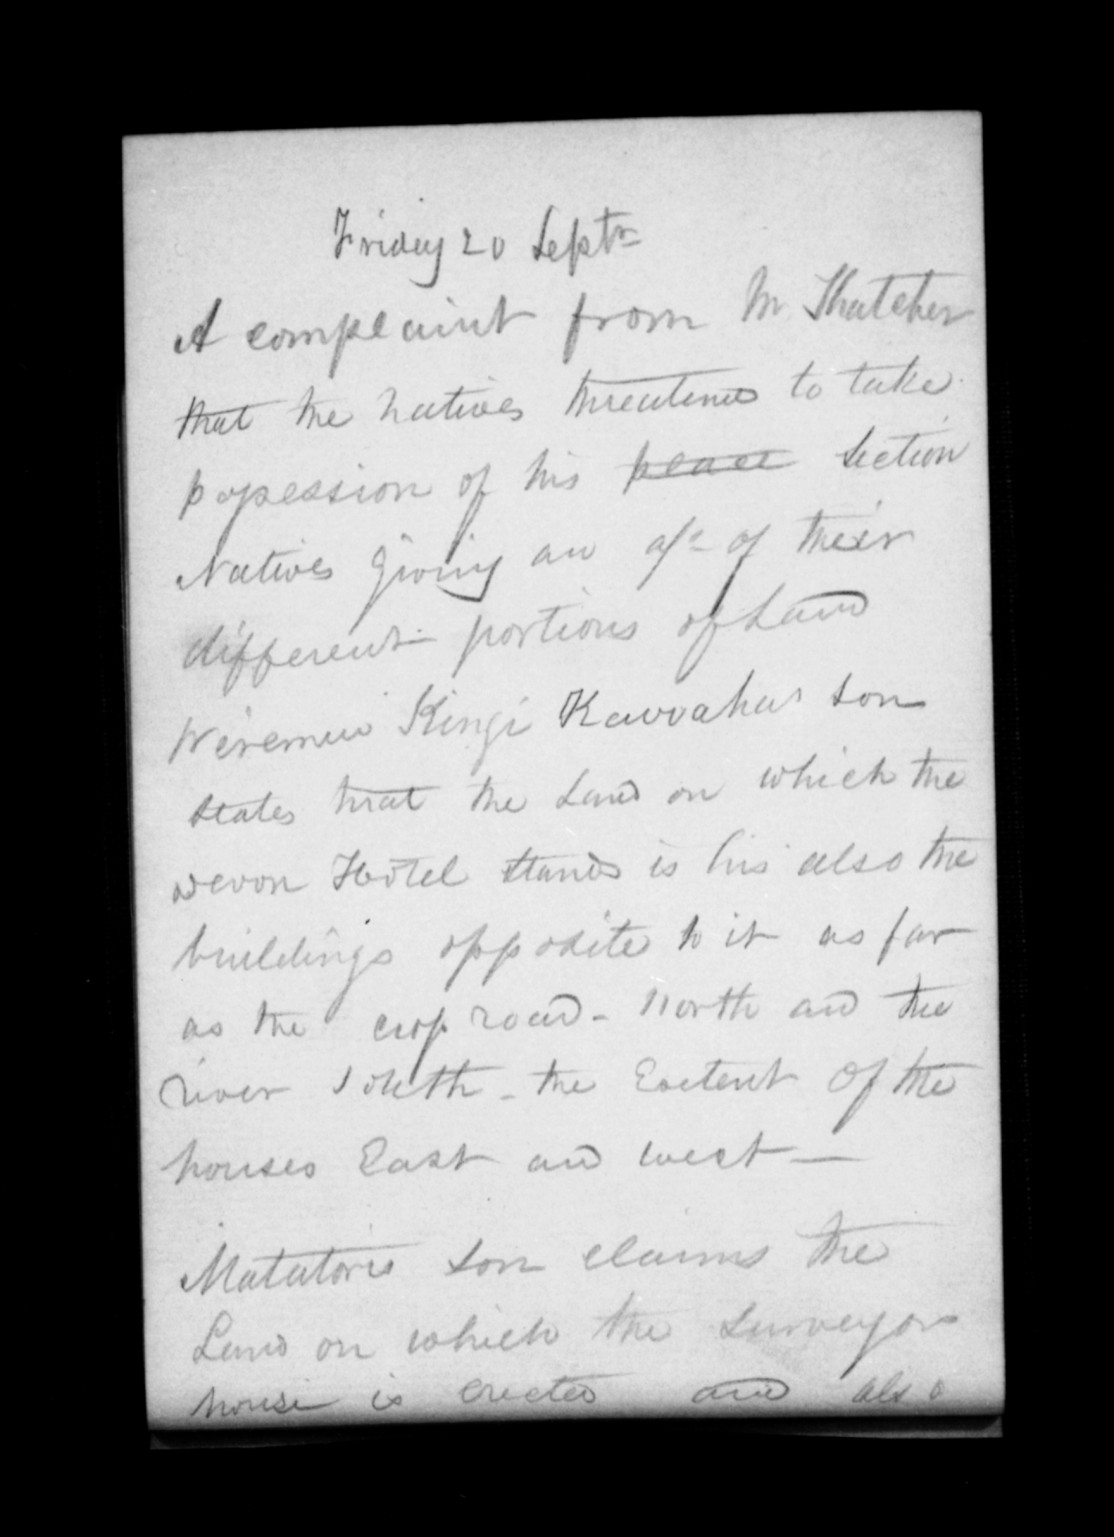 Friday 20 Septr
A complaint from Mr Thatcher
that the natives threatened to take
possession of his ~~peace~~ section
Natives giving an a/c of their
different portions of Land
Wiremu Kingi Kawaha's son
states that the Land on which the
Devon Hotel stands is his also the
buildings opposite to it as far
as the cross road - North and the
river South - the Extent of the
houses East and west —
Matatoris son claims the
Land on which the Surveyors
house is erected and also